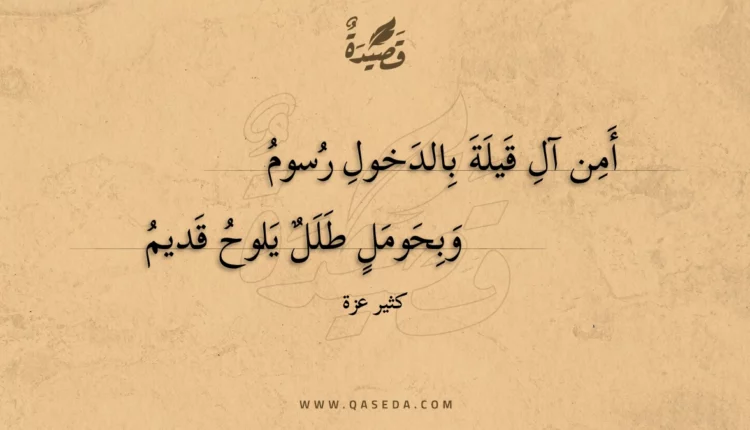 قَصِيْدَةٌ
أَمِن آلِ قَيلَةَ بِالدَخولِ رُسومُ
وَبِحَومَلٍ طَلَلٌ يَلوحُ قَديمُ
كثير عزة
WWW.QASEDA.COM